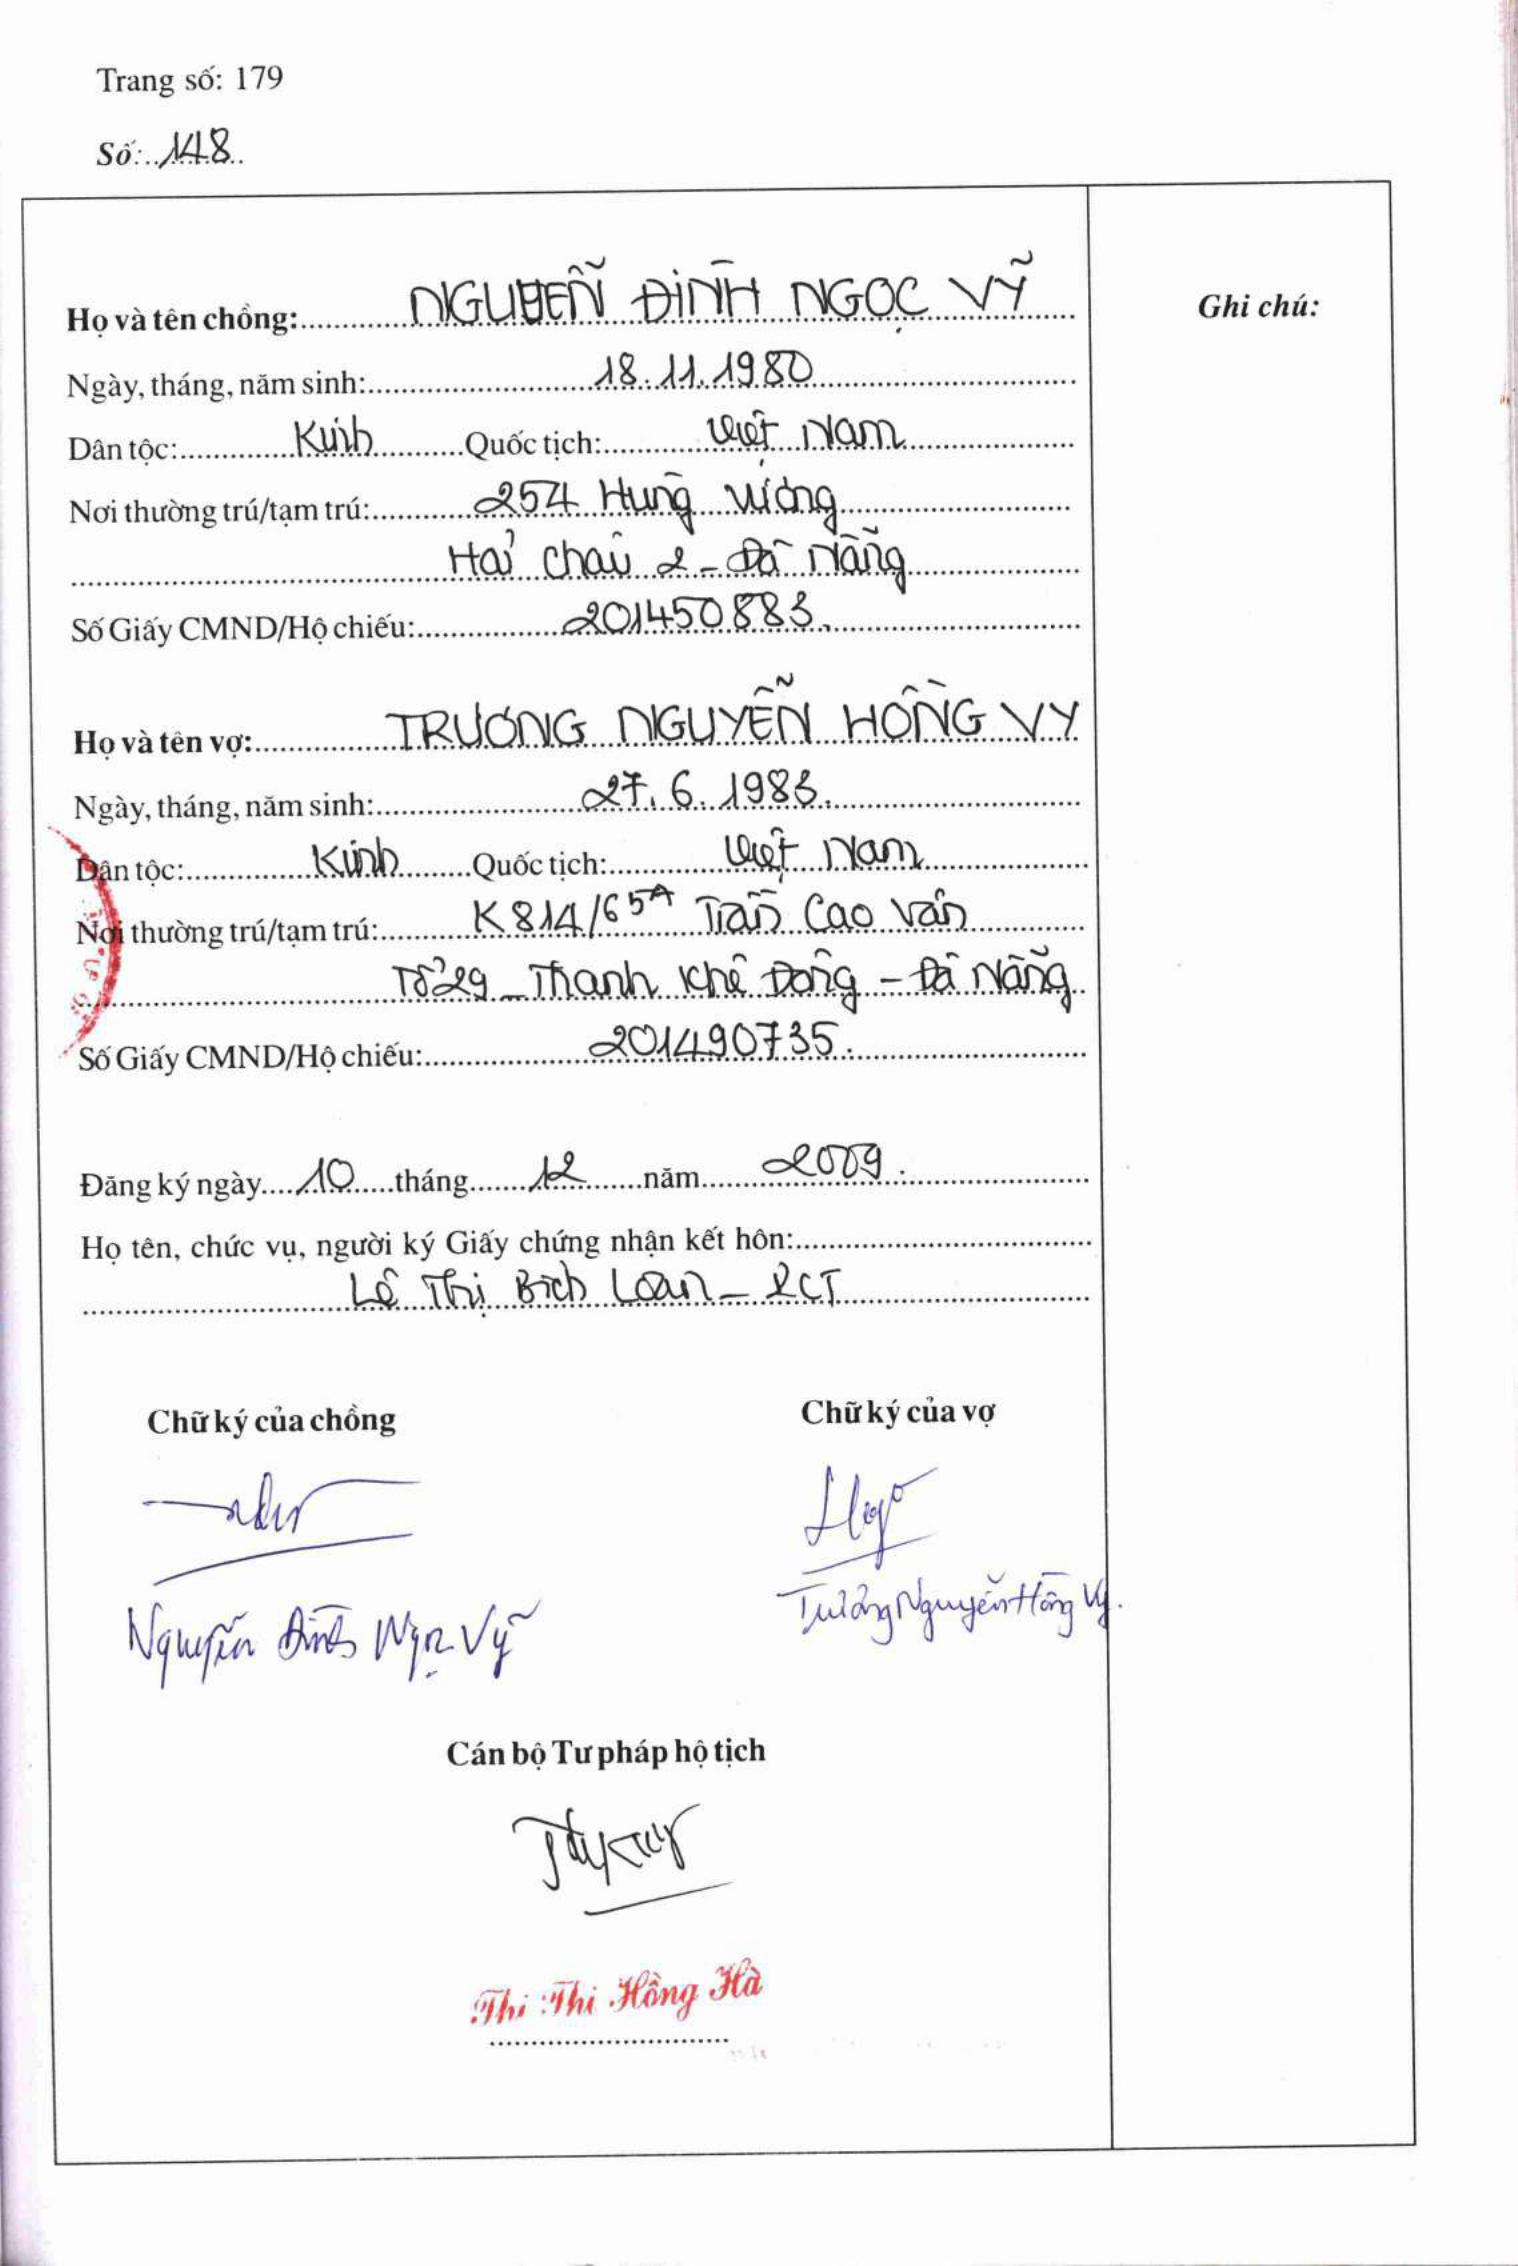 Trang số: 179
Số: 148
Họ và tên chồng: NGUYỄN ĐÌNH NGỌC VỸ
Ghi chú:
Ngày, tháng, năm sinh: 18.11.1980
Dân tộc: Kinh Quốc tịch: Việt Nam
Nơi thường trú/tạm trú: 254 Hùng Vương
Hải Châu 2 - Đà Nẵng
Số Giấy CMND/Hộ chiếu: 201450883.
Họ và tên vợ: TRƯƠNG NGUYỄN HỒNG VY
Ngày, tháng, năm sinh: 27.6.1983.
Dân tộc: Kinh Quốc tịch: Việt Nam
Nơi thường trú/tạm trú: K814/65A Trần Cao Vân
Tổ 29 - Thanh Khê Đông - Đà Nẵng
Số Giấy CMND/Hộ chiếu: 201490735.
Đăng ký ngày 10 tháng 12 năm 2009.
Họ tên, chức vụ, người ký Giấy chứng nhận kết hôn:
Lê Thị Bích Loan - PCT
Chữ ký của chồng Chữ ký của vợ
Trương Nguyễn Hồng Vy.
Nguyễn Đình Ngọc Vỹ
Cán bộ Tư pháp hộ tịch
Thi Thi Hồng Hà